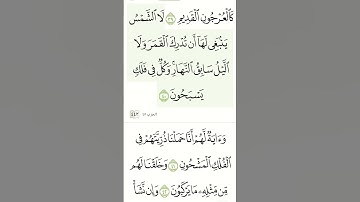 كَٱلْعُرْجُونِ ٱلْقَدِيمِ ٣٩ لَا ٱلشَّمْسُ
يَنۢبَغِى لَهَآ أَن تُدْرِكَ ٱلْقَمَرَ وَلَا
ٱلَّيْلُ سَابِقُ ٱلنَّهَارِ ۚ وَكُلٌّ فِى فَلَكٍ
يَسْبَحُونَ ٤٠
٤٤٢
وَءَايَةٌ لَّهُمْ أَنَّا حَمَلْنَا ذُرِّيَّتَهُمْ فِى
ٱلْفُلْكِ ٱلْمَشْحُونِ ٤١ وَخَلَقْنَا لَهُم
مِّن مِّثْلِهِۦ مَا يَرْكَبُونَ ٤٢ وَإِن نَّشَأْ